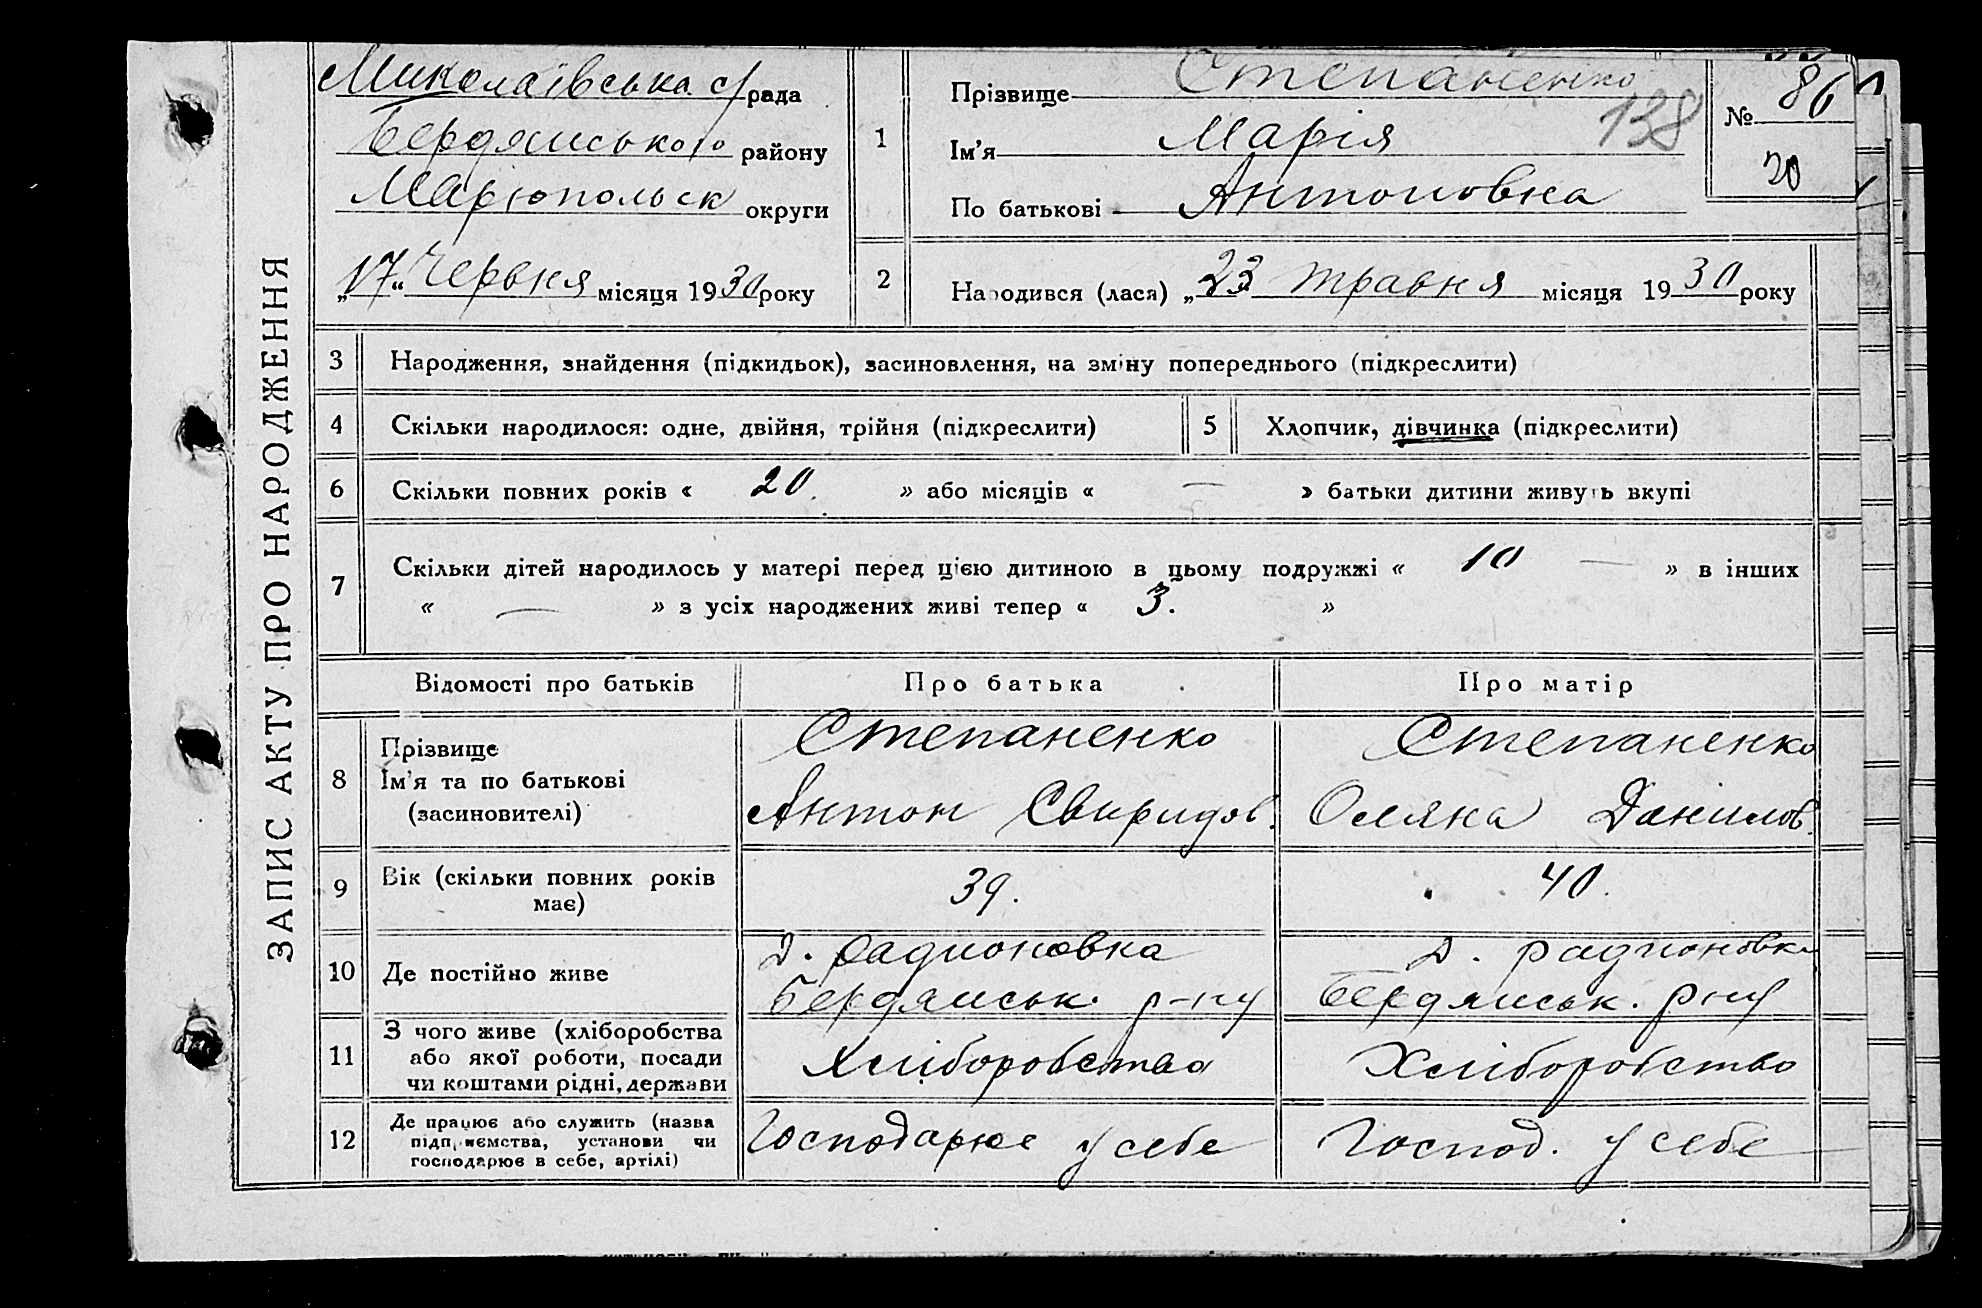 ЗАПИС АКТУ ПРО НАРОДЖЕННЯ
Миколаївська с/рада
Бердянського району
Маріюпольск округи
„17“ Червня місяця 1930 року
1
Прізвище Степаненко
Ім'я Марія
По батькові Антоновна
138
№ 86
20
2
Народився (лася) „23 травня місяця 1930 року
3 Народження, знайдення (підкидьок), засиновлення, на зміну попереднього (підкреслити)
4 Скільки народилося: одне, двійня, трійня (підкреслити)
5 Хлопчик, дівчинка (підкреслити)
6 Скільки повних років « 20. » або місяців « — » батьки дитини живуть вкупі
7 Скільки дітей народилось у матері перед цією дитиною в цьому подружжі « 10 — » в інших
« — » з усіх народжених живі тепер « 3. »
Відомості про батьків
Про батька
Про матір
8
Прізвище
Ім'я та по батькові
(засиновителі)
Степаненко
Антон Свиридов.
Степаненко
Оляна Данилов.
9
Вік (скільки повних років
має)
39.
40.
10 Де постійно живе
д. радионовка
Бердянськ. р-ну
д. радионовка
Бердянськ. рну
11
З чого живе (хліборобства
або якої роботи, посади
чи коштами рідні, держави
Хліборобство
Хліборобство
12
Де працює або служить (назва
підприємства, установи чи
господарює в себе, артілі)
Господарює у себе
Господ. у себе